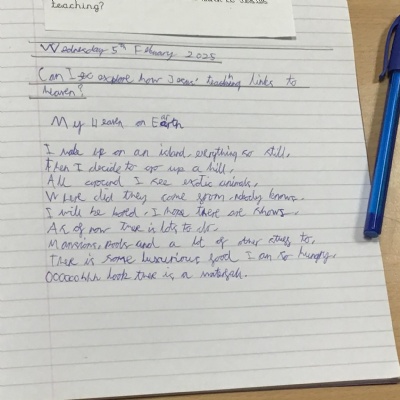 teaching?
Wednesday 5th February 2025
Can I explore how Jesus' teaching links to
heaven?
My Heaven on Earth
I wake up on an island, everything so still,
then I decide to go up a hill,
All around I see exotic animals,
Where did they come from, nobody knows.
I will be bored, I hope there are shows.
As of now There is lots to do,
Mansions, Pools and a lot of other stuff to,
There is some luxurious food I am so hungry,
Ooooohhh look there is a waterfall.